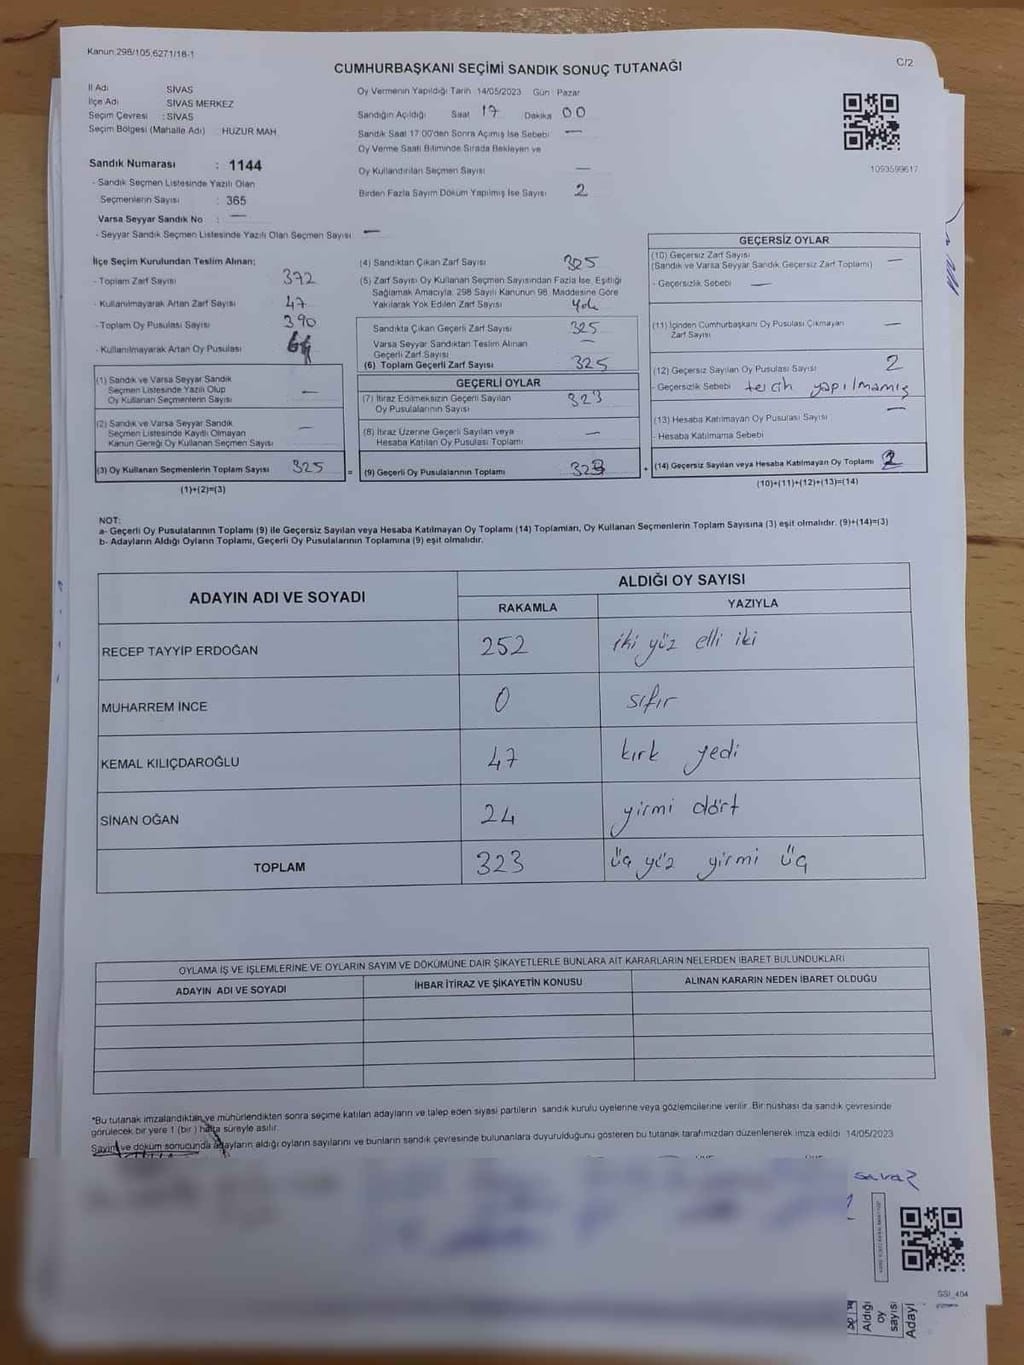 Kanun 298/105,6271/18-1
C/2
CUMHURBAŞKANI SEÇİMİ SANDIK SONUÇ TUTANAĞI
İl Adı SİVAS
İlçe Adı SİVAS MERKEZ
Seçim Çevresi : SİVAS
Seçim Bölgesi (Mahalle Adı) : HUZUR MAH
Oy Vermenin Yapıldığı Tarih 14/05/2023 Gün : Pazar
Sandığın Açıldığı Saat 17 Dakika 00
Sandık Saat 17:00'den Sonra Açılmış İse Sebebi —
Oy Verme Saati Bitiminde Sırada Bekleyen ve
Oy Kullandırılan Seçmen Sayısı —
Birden Fazla Sayım Döküm Yapılmış İse Sayısı 2
1093599617
Sandık Numarası : 1144
- Sandık Seçmen Listesinde Yazılı Olan
Seçmenlerin Sayısı : 365
Varsa Seyyar Sandık No : —
- Seyyar Sandık Seçmen Listesinde Yazılı Olan Seçmen Sayısı : —
İlçe Seçim Kurulundan Teslim Alınan;
- Toplam Zarf Sayısı 372
- Kullanılmayarak Artan Zarf Sayısı 47
- Toplam Oy Pusulası Sayısı 390
- Kullanılmayarak Artan Oy Pusulası
(1) Sandık ve Varsa Seyyar Sandık
Seçmen Listesinde Yazılı Olup
Oy Kullanan Seçmenlerin Sayısı —
(2) Sandık ve Varsa Seyyar Sandık
Seçmen Listesinde Kayıtlı Olmayan
Kanun Gereği Oy Kullanan Seçmen Sayısı —
(3) Oy Kullanan Seçmenlerin Toplam Sayısı 325
(1)+(2)=(3)
(4) Sandıktan Çıkan Zarf Sayısı 325
(5) Zarf Sayısı Oy Kullanan Seçmen Sayısından Fazla İse, Eşitliği
Sağlamak Amacıyla; 298 Sayılı Kanunun 98. Maddesine Göre
Yakılarak Yok Edilen Zarf Sayısı Yok
Sandıkta Çıkan Geçerli Zarf Sayısı 325
Varsa Seyyar Sandıktan Teslim Alınan
Geçerli Zarf Sayısı —
(6) Toplam Geçerli Zarf Sayısı 325
GEÇERLİ OYLAR
(7) İtiraz Edilmeksizin Geçerli Sayılan
Oy Pusulalarının Sayısı 323
(8) İtiraz Üzerine Geçerli Sayılan veya
Hesaba Katılan Oy Pusulası Toplamı —
= (9) Geçerli Oy Pusulalarının Toplamı 323 +
GEÇERSİZ OYLAR
(10) Geçersiz Zarf Sayısı
(Sandık ve Varsa Seyyar Sandık Geçersiz Zarf Toplamı) —
- Geçersizlik Sebebi —
(11) İçinden Cumhurbaşkanı Oy Pusulası Çıkmayan
Zarf Sayısı —
(12) Geçersiz Sayılan Oy Pusulası Sayısı 2
- Geçersizlik Sebebi tercih yapılmamış
(13) Hesaba Katılmayan Oy Pusulası Sayısı —
- Hesaba Katılmama Sebebi
(14) Geçersiz Sayılan veya Hesaba Katılmayan Oy Toplamı 2
(10)+(11)+(12)+(13)=(14)
NOT:
a- Geçerli Oy Pusulalarının Toplamı (9) ile Geçersiz Sayılan veya Hesaba Katılmayan Oy Toplamı (14) Toplamları, Oy Kullanan Seçmenlerin Toplam Sayısına (3) eşit olmalıdır. (9)+(14)=(3)
b- Adayların Aldığı Oyların Toplamı, Geçerli Oy Pusulalarının Toplamına (9) eşit olmalıdır.
ADAYIN ADI VE SOYADI ALDIĞI OY SAYISI
RAKAMLA YAZIYLA
RECEP TAYYİP ERDOĞAN 252 iki yüz elli iki
MUHARREM İNCE 0 sıfır
KEMAL KILIÇDAROĞLU 47 kırk yedi
SİNAN OĞAN 24 yirmi dört
TOPLAM 323 üç yüz yirmi üç
OYLAMA İŞ VE İŞLEMLERİNE VE OYLARIN SAYIM VE DÖKÜMÜNE DAİR ŞİKAYETLERLE BUNLARA AİT KARARLARIN NELERDEN İBARET BULUNDUKLARI
ADAYIN ADI VE SOYADI İHBAR İTİRAZ VE ŞİKAYETİN KONUSU ALINAN KARARIN NEDEN İBARET OLDUĞU
*Bu tutanak imzalandıktan ve mühürlendikten sonra seçime katılan adayların ve talep eden siyasi partilerin sandık kurulu üyelerine veya gözlemcilerine verilir. Bir nüshası da sandık çevresinde
görülecek bir yere 1 (bir) hafta süreyle asılır.
Sayım ve döküm sonucunda adayların aldığı oyların sayılarını ve bunların sandık çevresinde bulunanlara duyurulduğunu gösteren bu tutanak tarafımızdan düzenlenerek imza edildi 14/05/2023
SSI_404
Aldığı
oy
sayısı
Adayı